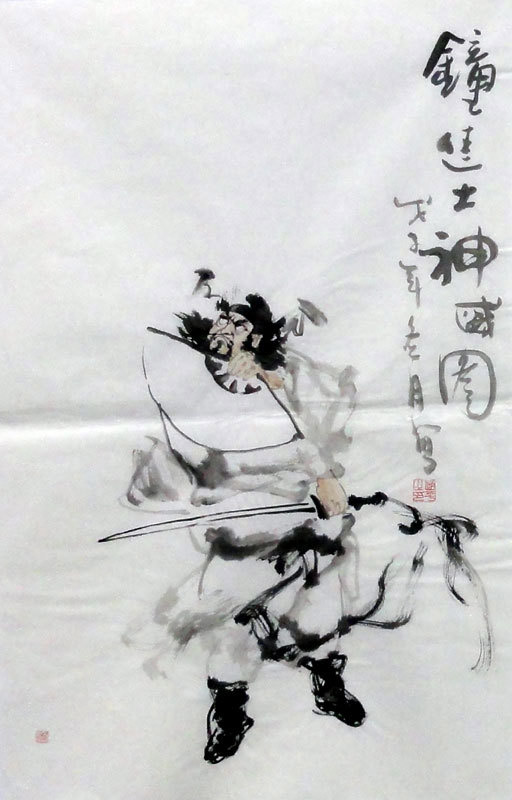 鐘進士神威圖
戊子年冬月寫